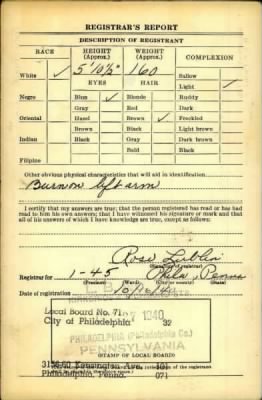 REGISTRAR'S REPORT
DESCRIPTION OF REGISTRANT
RACE HEIGHT (Approx.) WEIGHT (Approx.) COMPLEXION
White ✓ 5' 10½" 160 Sallow
EYES HAIR Light ✓
Negro Blue ✓ Blonde Ruddy
Gray Red Dark
Oriental Hazel Brown ✓ Freckled
Brown Black Light brown
Indian Black Gray Dark brown
Bald Black
Filipino
Other obvious physical characteristics that will aid in identification
Burn on left arm
I certify that my answers are true; that the person registered has read or has had
read to him his own answers; that I have witnessed his signature or mark and that
all of his answers of which I have knowledge are true, except as follows:
Rose Lublin
(Signature of registrar)
Registrar for 1-45 32 Phila., Penna
(Precinct) (Ward) (City or county) (State)
Date of registration 10/16/40
Local Board No. 71
City of Philadelphia 32
1940
PHILADELPHIA (Philadelphia Co.)
PENNSYLVANIA
(STAMP OF LOCAL BOARD)
Kensington Ave. 101
Philadelphia, Penna. 071